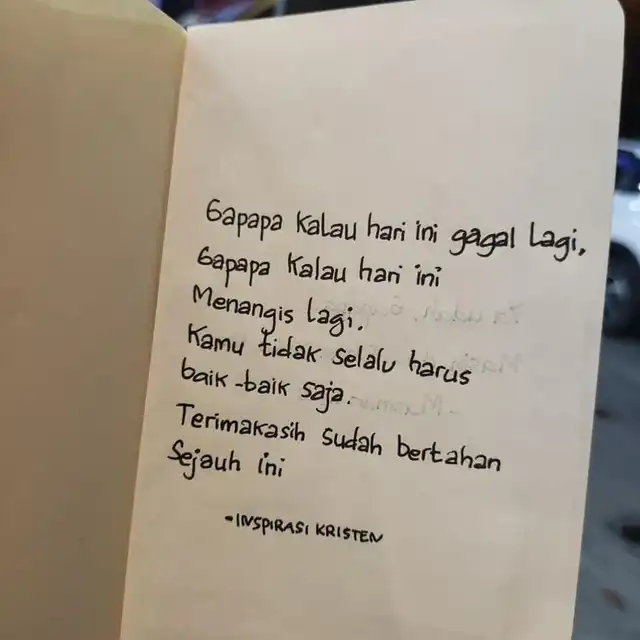 Gapapa kalau hari ini gagal lagi.
Gapapa kalau hari ini
Menangis lagi.
Kamu tidak selalu harus
baik-baik saja.
Terimakasih sudah bertahan
Sejauh ini
-INSPIRASI KRISTEN